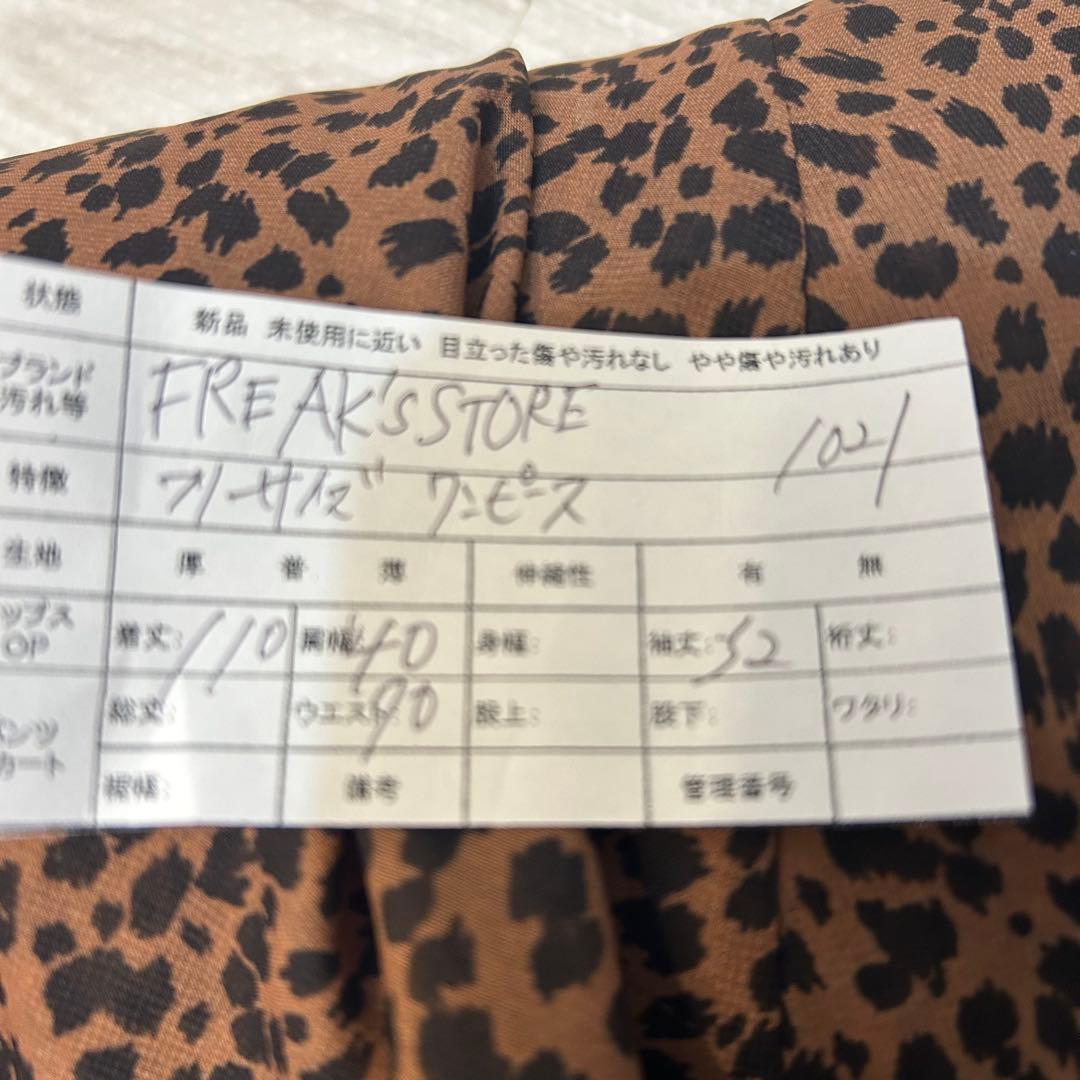 状態 新品 未使用に近い 目立った傷や汚れなし やや傷や汚れあり
ブランド
汚れ等 FREAK'S STORE 1021
特徴 フリーサイズ ワンピース
生地 厚 普 薄 伸縮性 有 無
ップス
OP 着丈: 110 肩幅: 40 身幅: 袖丈: 52 裄丈:
ンツ
カート 総丈: ウエスト: 90 股上: 股下: ワタリ:
裾幅: 備考 管理番号